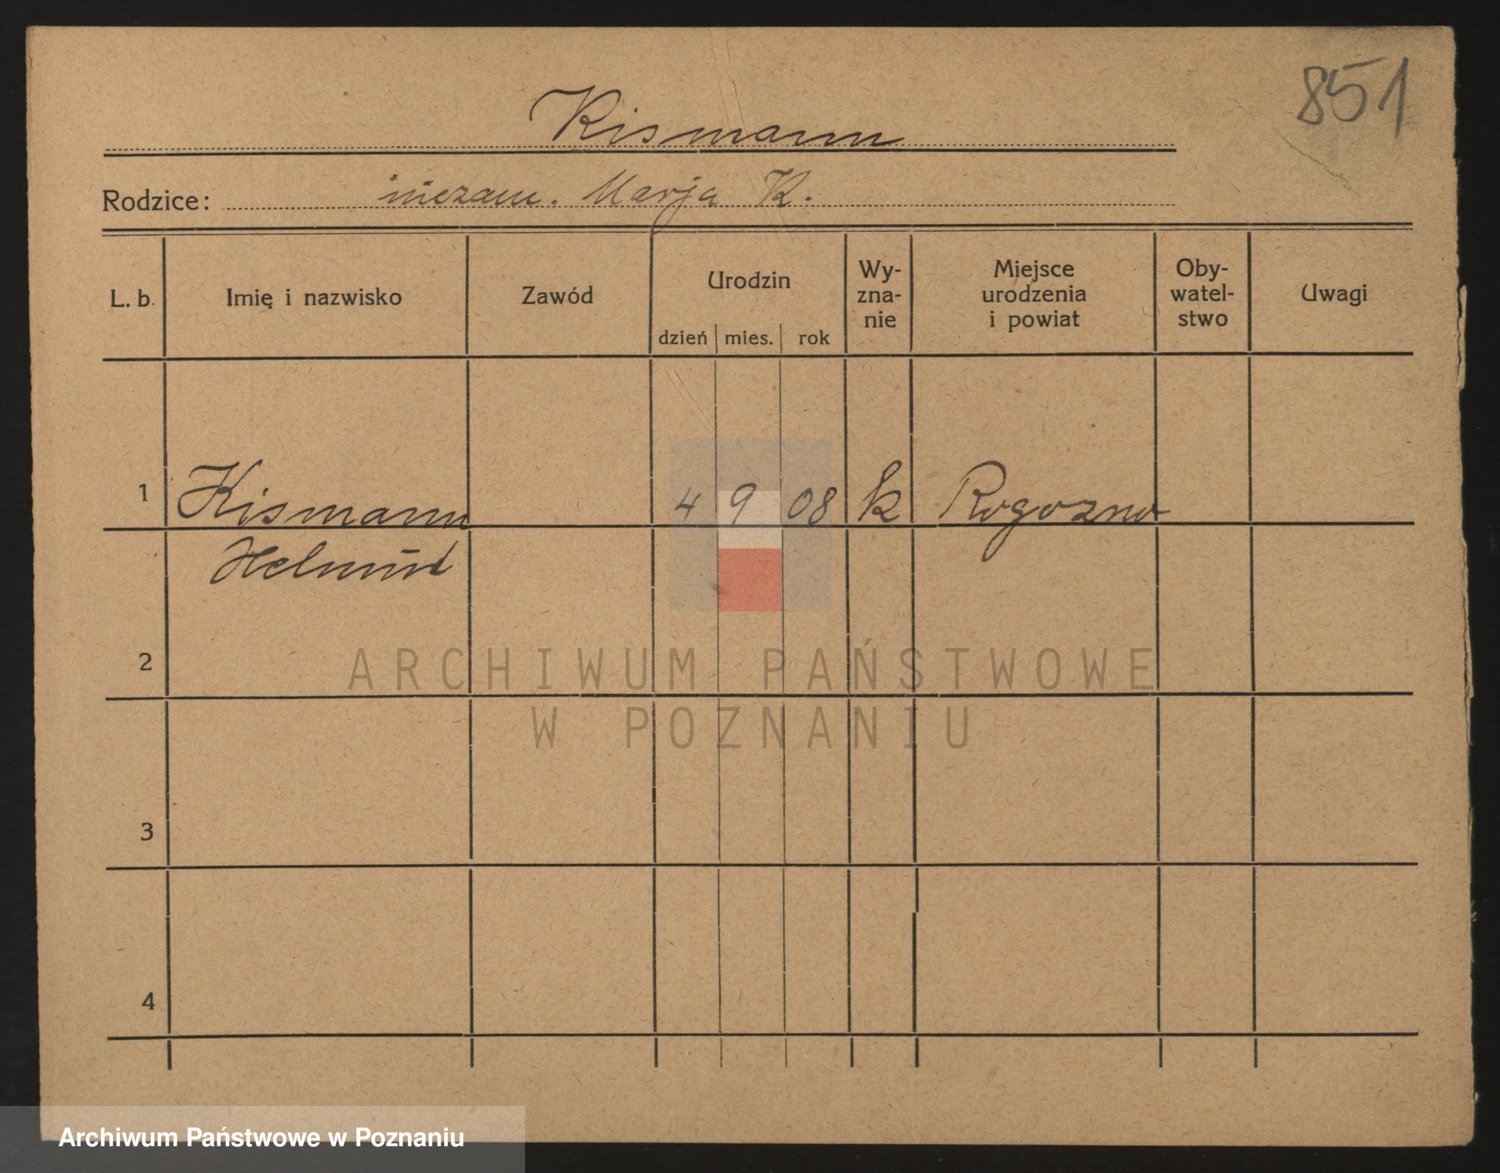 851
Kismann
Rodzice: niezam. Marja K.
L. b. Imię i nazwisko Zawód Urodzin Wy-zna-nie Miejsce urodzenia i powiat Oby-watel-stwo Uwagi
dzień mies. rok
1 Kismann 4 9 08 k Rogozno
Helmut
2
ARCHIWUM PAŃSTWOWE
W POZNANIU
3
4
Archiwum Państwowe w Poznaniu